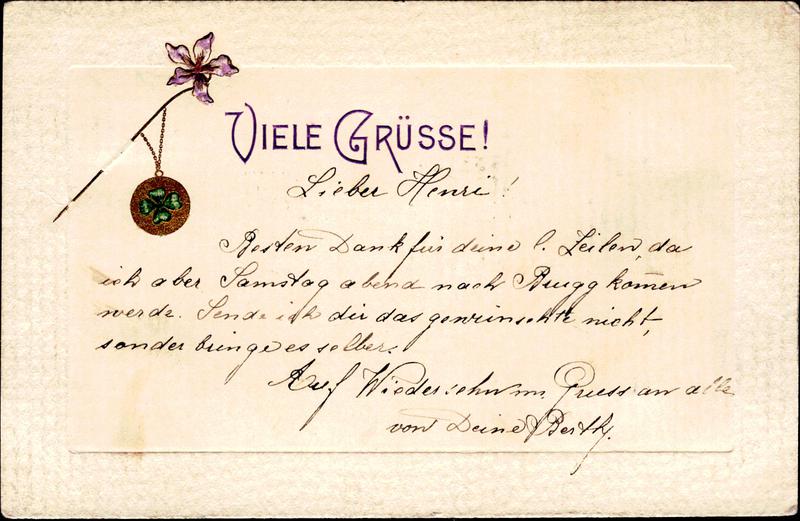 VIELE GRÜSSE!
Lieber Henri!
Besten Dank für deine l. Zeilen, da
ich aber Samstag abend nach Brugg kom̅en
werde. Sende ich dir das gewünschte nicht,
sonder bringe es selber.
Auf Wiedersehn m. Gruss an alle
von Deine Berth.